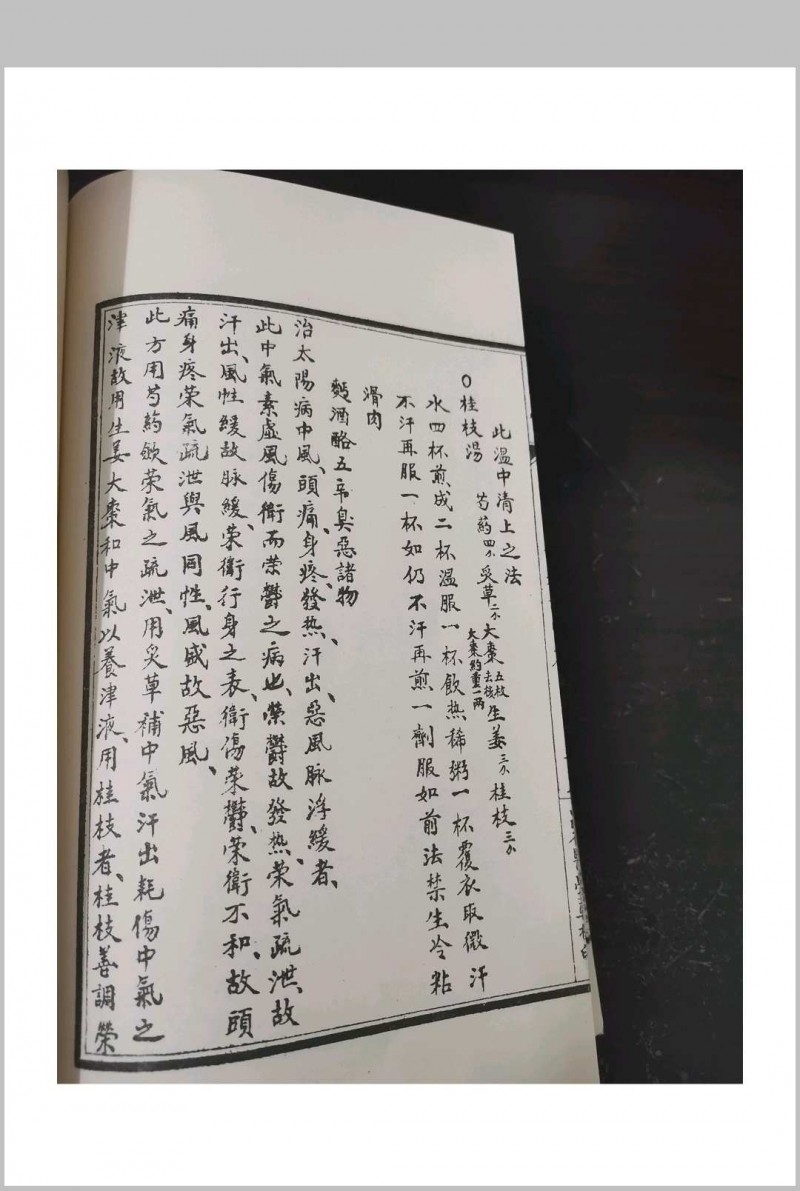 此溫中清上之法
○桂枝湯 芍藥四錢 炙草二錢 大棗五枚去核 大棗約重一兩 生姜三錢 桂枝三錢
水四杯煎成二杯溫服一杯飲热稀粥一杯覆衣取微汗
不汗再服一杯如仍不汗再煎一劑服如前法禁生冷粘
滑肉
麵酒酪五辛臭惡諸物
治太陽病中風、頭痛、身疼、發热、汗出、惡風脉浮緩者、
此中氣素虛風傷衛而荣鬱之病也、荣鬱故發热、荣氣疏泄、故
汗出、風性緩故脉緩、荣衛行身之表、衛傷荣鬱、荣衛不和、故頭
痛身疼荣氣疏泄與風同性、風盛故惡風、
此方用芍藥斂荣氣之疏泄、用炙草補中氣汗出耗傷中氣之
津液故用生姜大棗和中氣以養津液、用桂枝者、桂枝善調榮